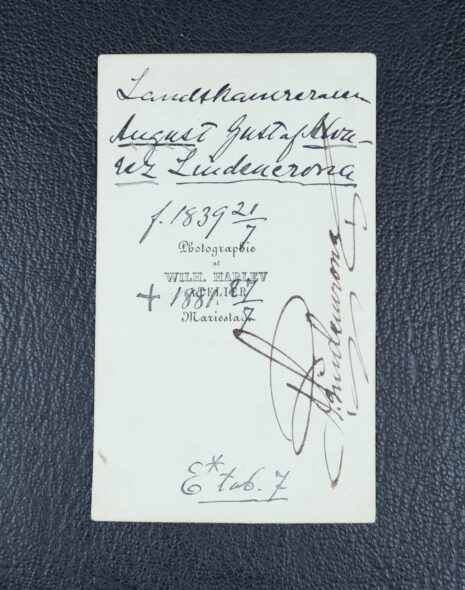 Landskamreraren
August Gustaf Mon-
rez Lindencrona
f. 1839 21/7
Photographie
at
WILH. HARLEV
ATELIER
i
Mariestad
+ 1881 /7
Lindencrona
E* tab. 7